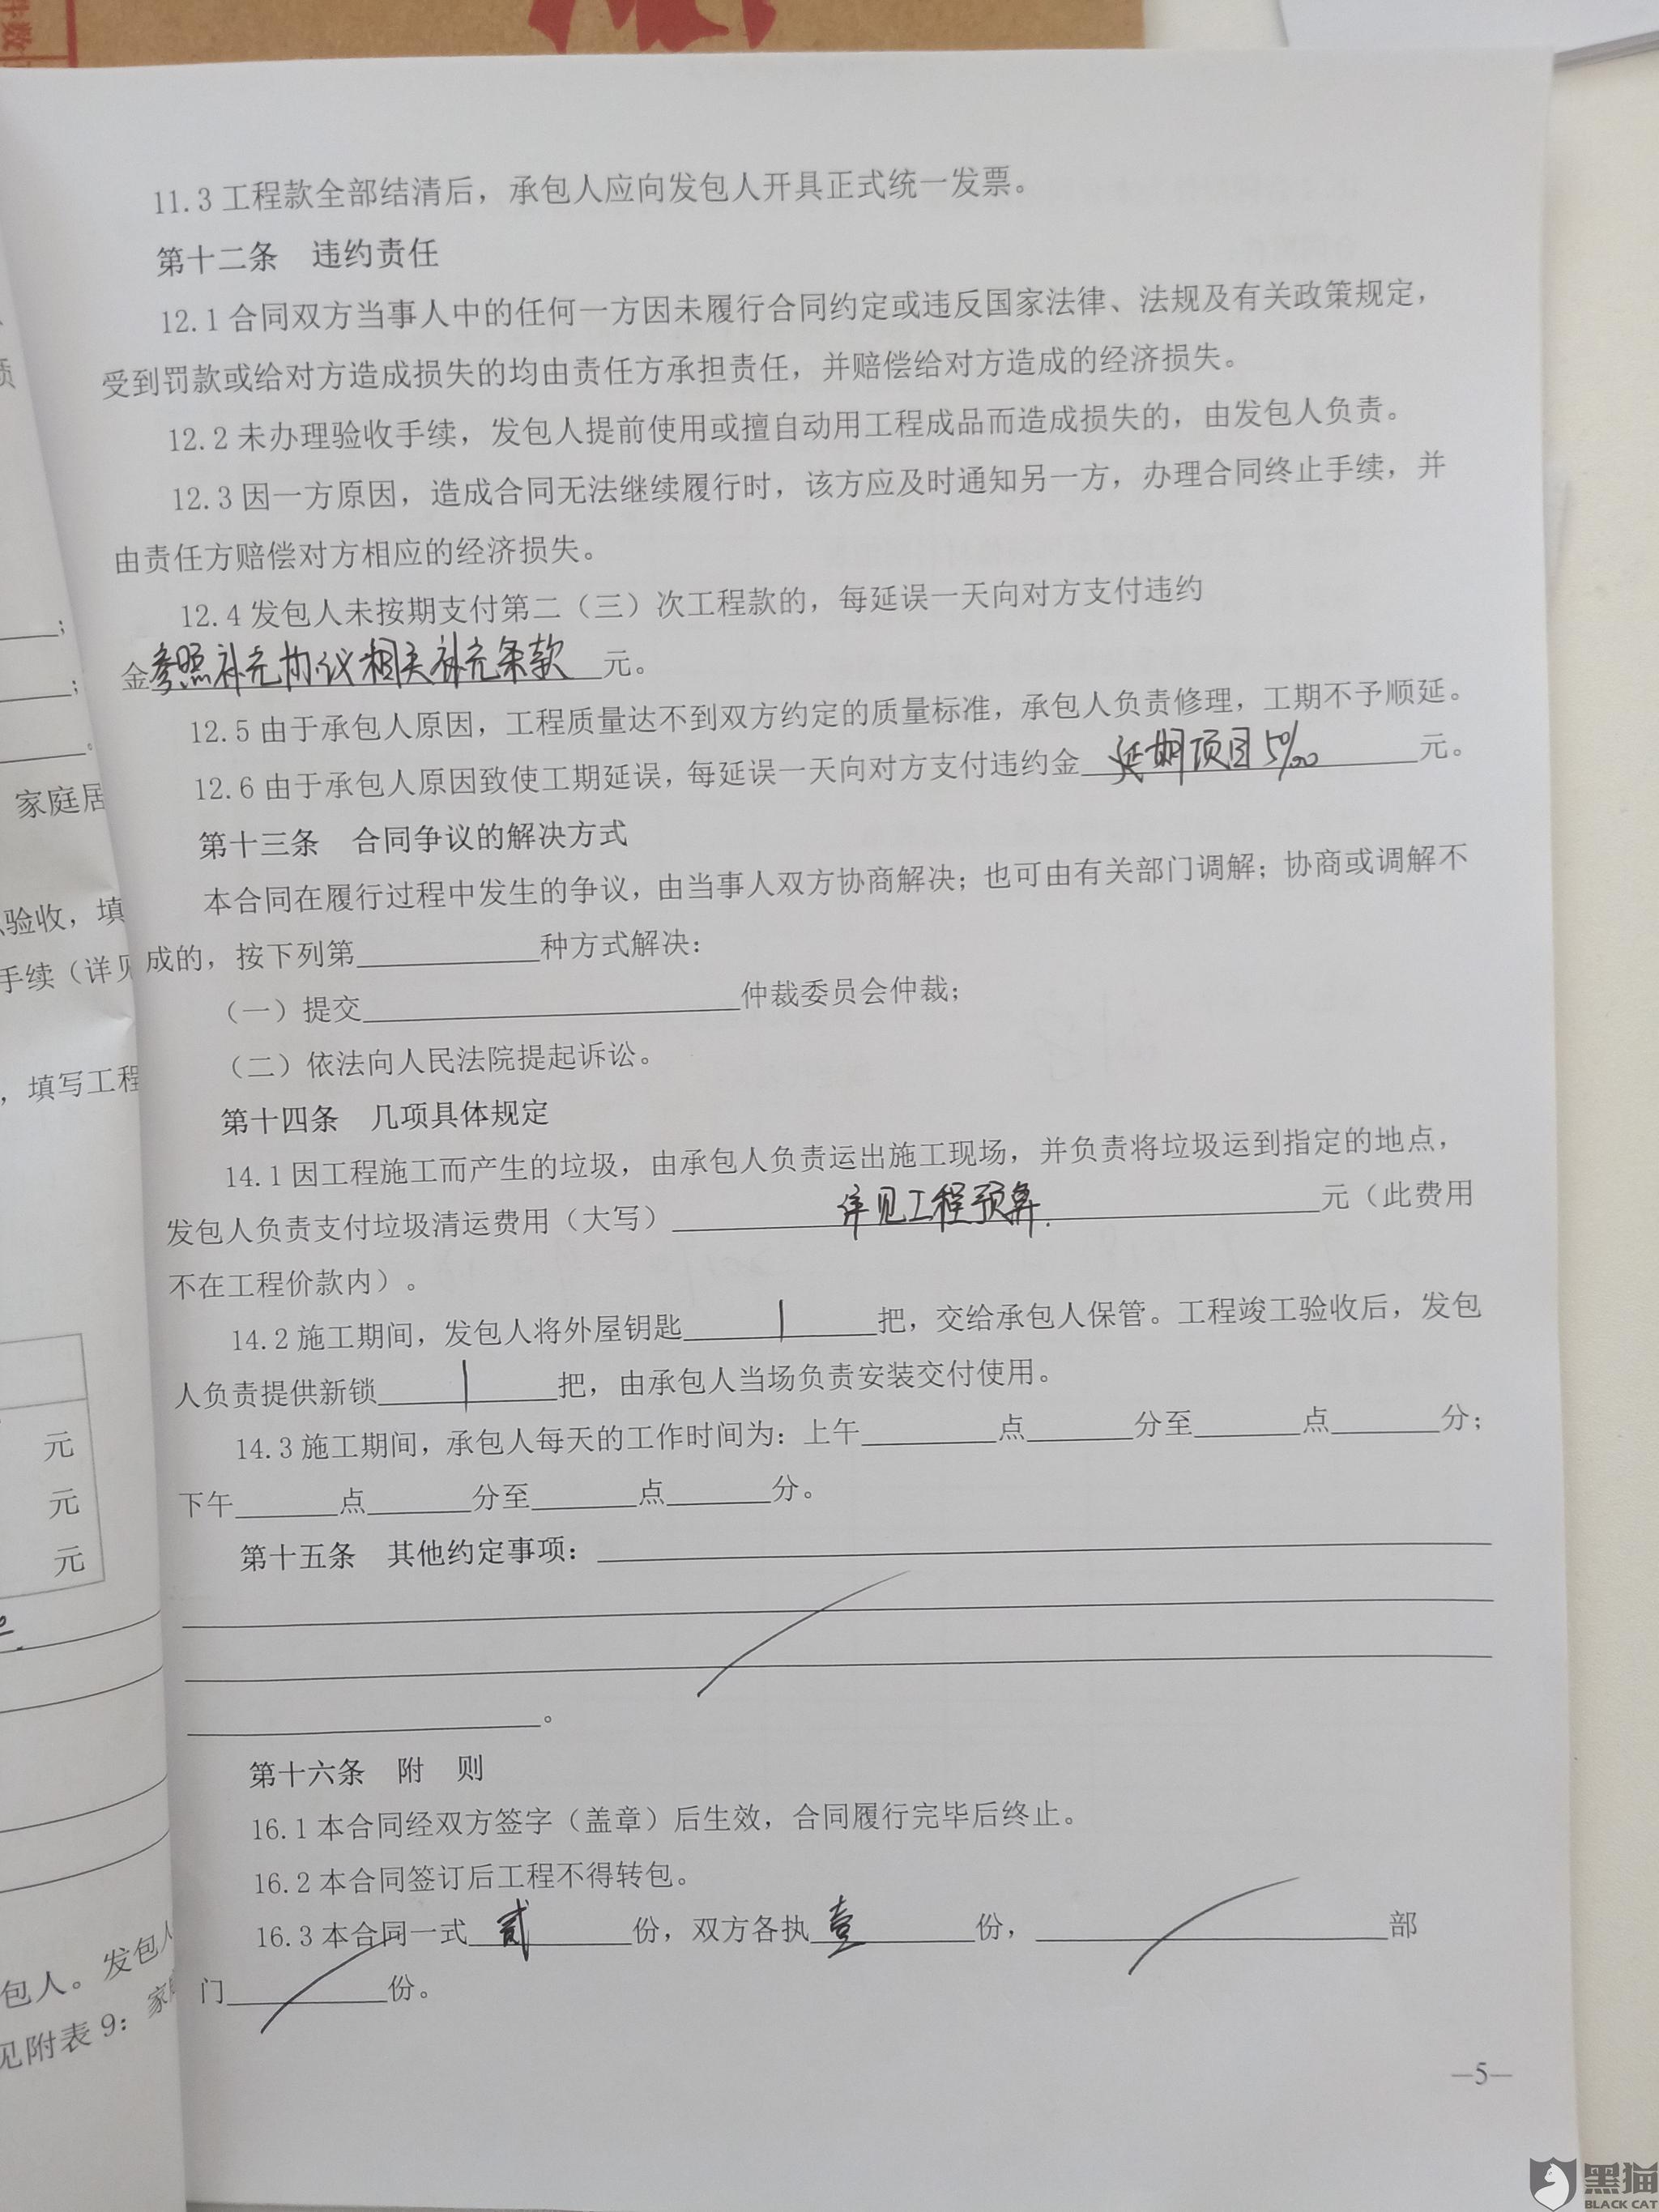 件数
11.3 工程款全部结清后，承包人应向发包人开具正式统一发票。
第十二条　违约责任
12.1 合同双方当事人中的任何一方因未履行合同约定或违反国家法律、法规及有关政策规定，
受到罚款或给对方造成损失的均由责任方承担责任，并赔偿给对方造成的经济损失。
12.2 未办理验收手续，发包人提前使用或擅自动用工程成品而造成损失的，由发包人负责。
12.3 因一方原因，造成合同无法继续履行时，该方应及时通知另一方，办理合同终止手续，并
由责任方赔偿对方相应的经济损失。
12.4 发包人未按期支付第二（三）次工程款的，每延误一天向对方支付违约
金参照补充协议相关补充条款元。
12.5 由于承包人原因，工程质量达不到双方约定的质量标准，承包人负责修理，工期不予顺延。
12.6 由于承包人原因致使工期延误，每延误一天向对方支付违约金 延期项目5‰ 元。
第十三条　合同争议的解决方式
本合同在履行过程中发生的争议，由当事人双方协商解决；也可由有关部门调解；协商或调解不
成的，按下列第______种方式解决：
（一）提交____________仲裁委员会仲裁；
（二）依法向人民法院提起诉讼。
第十四条　几项具体规定
14.1 因工程施工而产生的垃圾，由承包人负责运出施工现场，并负责将垃圾运到指定的地点，
发包人负责支付垃圾清运费用（大写） 详见工程预算. 元（此费用
不在工程价款内）。
14.2 施工期间，发包人将外屋钥匙 1 把，交给承包人保管。工程竣工验收后，发包
人负责提供新锁 1 把，由承包人当场负责安装交付使用。
14.3 施工期间，承包人每天的工作时间为：上午____点____分至____点____分；
下午____点____分至____点____分。
第十五条　其他约定事项：
。
第十六条　附　则
16.1 本合同经双方签字（盖章）后生效，合同履行完毕后终止。
16.2 本合同签订后工程不得转包。
16.3 本合同一式 贰 份，双方各执 壹 份，____________部
门______份。
—5—
家庭居
验收，填
手续（详见
，填写工程
元
元
元
包人。发包人
见附表 9：家
黑猫
BLACK CAT